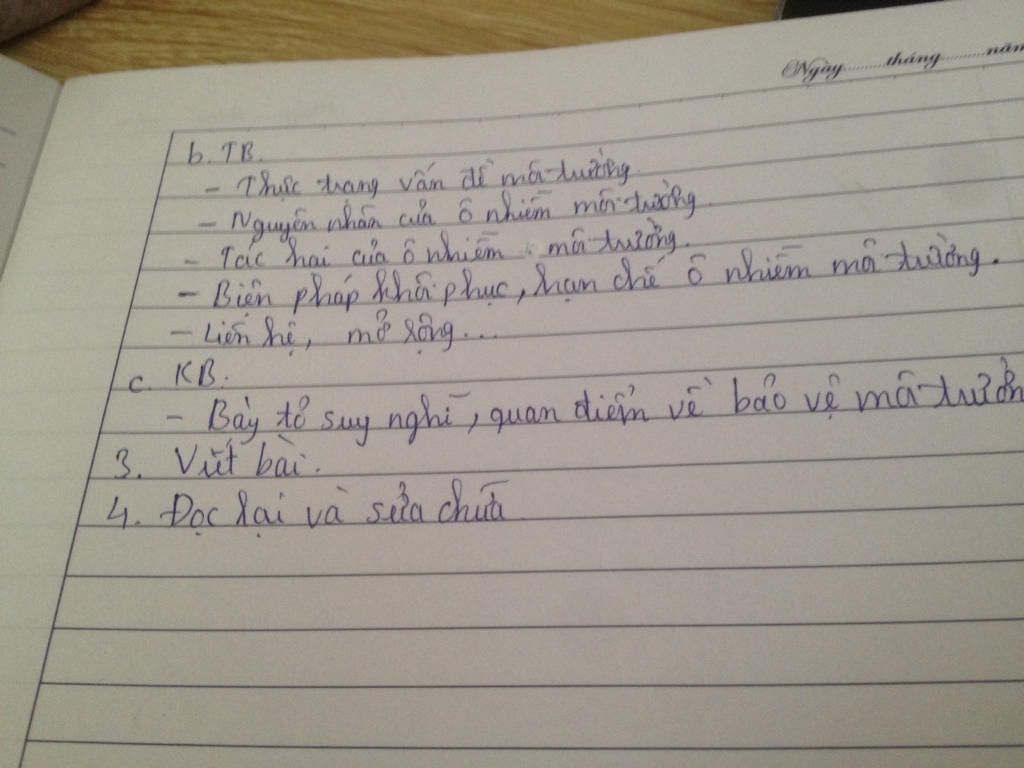 Ngày.........tháng.........năm
b. TB.
- Thực trạng vấn đề môi trường.
- Nguyên nhân của ô nhiễm môi trường.
- Tác hại của ô nhiễm môi trường.
- Biện pháp khôi phục, hạn chế ô nhiễm môi trường.
- Liên hệ, mở rộng...
c. KB.
- Bày tỏ suy nghĩ, quan điểm về bảo vệ môi trườn
3. Viết bài.
4. Đọc lại và sửa chữa